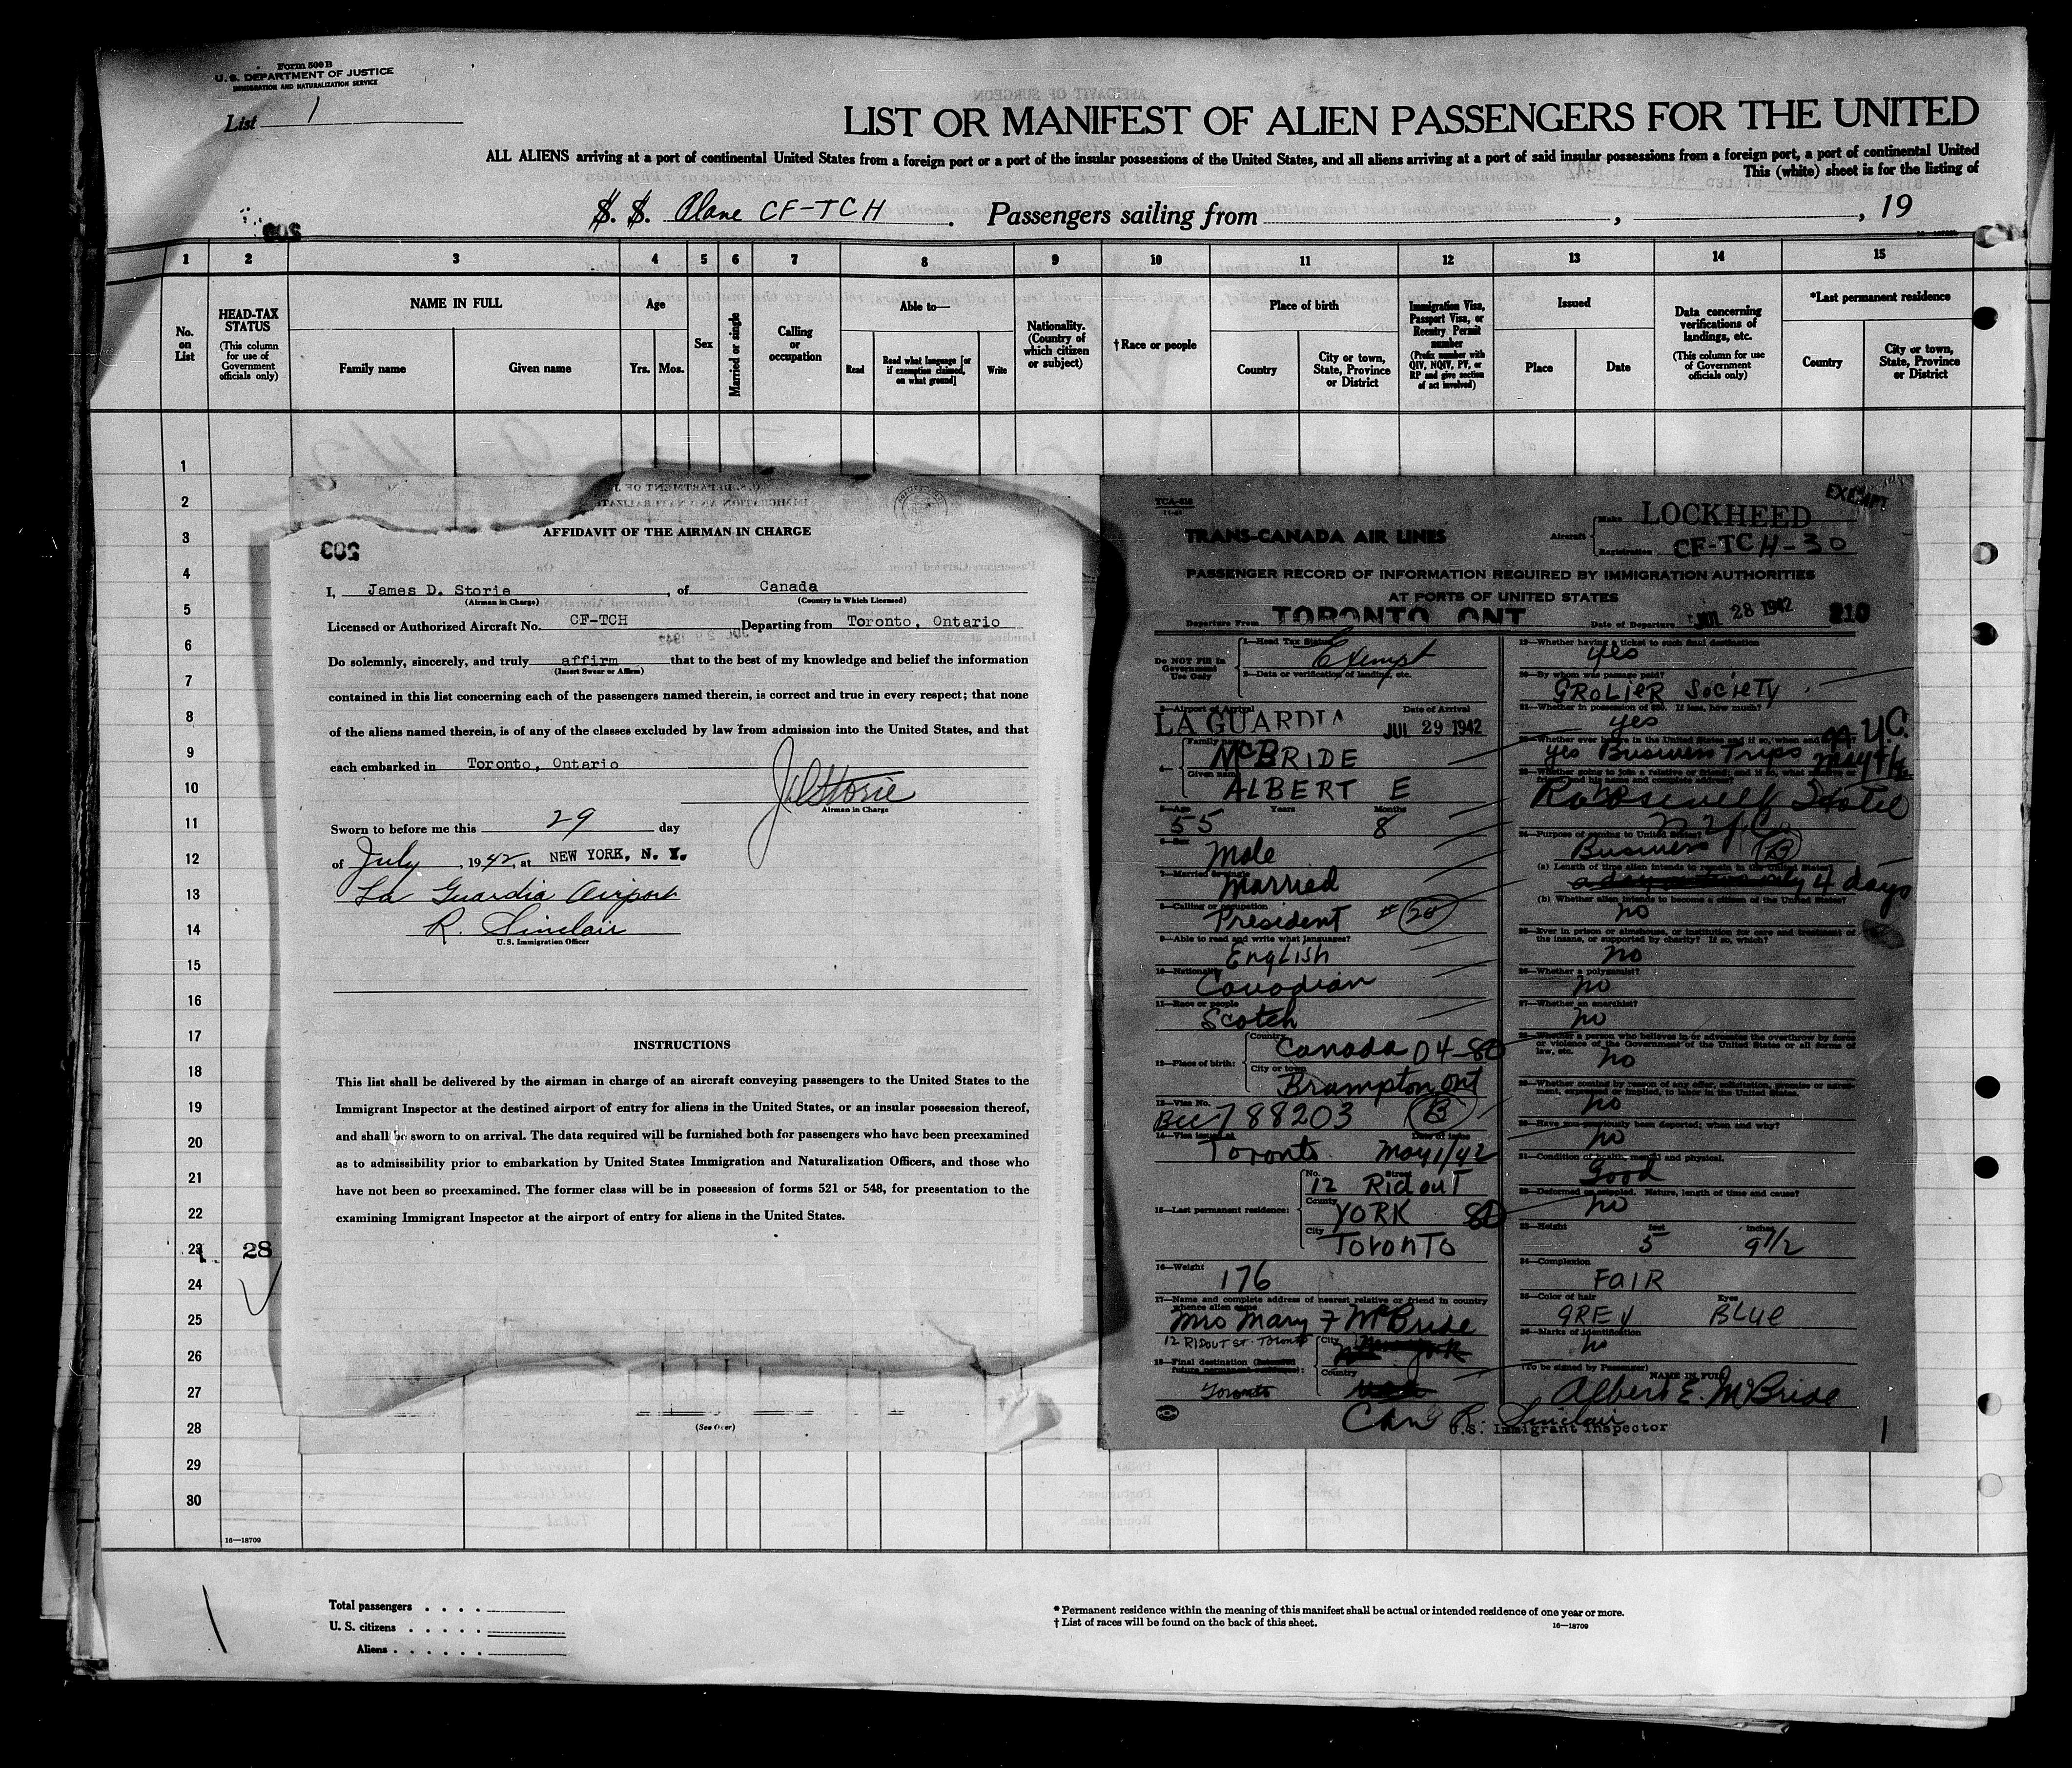 Form 500 B
U. S. DEPARTMENT OF JUSTICE
IMMIGRATION AND NATURALIZATION SERVICE
List 1
LIST OR MANIFEST OF ALIEN PASSENGERS FOR THE UNITED
ALL ALIENS arriving at a port of continental United States from a foreign port or a port of the insular possessions of the United States, and all aliens arriving at a port of said insular possessions from a foreign port, a port of continental United
This (white) sheet is for the listing of
S. S. Plane CF-TCH. Passengers sailing from , , 19
1 2 3 4 5 6 7 8 9 10 11 12 13 14 15
No. on List
HEAD-TAX STATUS
(This column for use of Government officials only)
NAME IN FULL
Family name
Given name
Age
Yrs. Mos.
Sex
Married or single
Calling or occupation
Able to—
Read
Read what language [or if exemption claimed, on what ground]
Write
Nationality. (Country of which citizen or subject)
†Race or people
Place of birth
Country
City or town, State, Province or District
Immigration Visa, Passport Visa, or Reentry Permit number
(Prefix number with QIV, NQIV, PV, or RP and give section of act involved)
Issued
Place
Date
Data concerning verifications of landings, etc.
(This column for use of Government officials only)
*Last permanent residence
Country
City or town, State, Province or District
1
2
3
4
5
6
7
8
9
10
11
12
13
14
15
16
17
18
19
20
21
22
23 28
24
25
26
27
28
29
30
16—18709
AFFIDAVIT OF THE AIRMAN IN CHARGE
203
I, James D. Storie, of Canada
(Airman in Charge) (Country in Which Licensed)
Licensed or Authorized Aircraft No. CF-TCH Departing from Toronto, Ontario
Do solemnly, sincerely, and truly affirm that to the best of my knowledge and belief the information
(Insert Swear or Affirm)
contained in this list concerning each of the passengers named therein, is correct and true in every respect; that none
of the aliens named therein, is of any of the classes excluded by law from admission into the United States, and that
each embarked in Toronto, Ontario
J D Storie
Airman in Charge
Sworn to before me this 29 day
of July, 1942, at NEW YORK, N. Y.
La Guardia Airport
R. Sinclair
U.S. Immigration Officer
INSTRUCTIONS
This list shall be delivered by the airman in charge of an aircraft conveying passengers to the United States to the
Immigrant Inspector at the destined airport of entry for aliens in the United States, or an insular possession thereof,
and shall be sworn to on arrival. The data required will be furnished both for passengers who have been preexamined
as to admissibility prior to embarkation by United States Immigration and Naturalization Officers, and those who
have not been so preexamined. The former class will be in possession of forms 521 or 548, for presentation to the
examining Immigrant Inspector at the airport of entry for aliens in the United States.
(See Over)
EXEMPT
TRANS-CANADA AIR LINES
Aircraft
Make LOCKHEED
Registration CF-TCH-30
PASSENGER RECORD OF INFORMATION REQUIRED BY IMMIGRATION AUTHORITIES
AT PORTS OF UNITED STATES
Departure From TORONTO, ONT Date of Departure JUL 28 1942 210
Do NOT Fill In
Government Use Only
1—Head Tax Status Exempt
2—Data or verification of landing, etc.
3—Airport of Arrival Date of Arrival
LA GUARDIA JUL 29 1942
4— Family name McBRIDE
Given name ALBERT E
5—Age Years Months
55 8
6—Sex
Male
7—Married or single
Married
8—Calling or occupation
President # 28
9—Able to read and write what languages?
English
10—Nationality
Canadian
11—Race or people
Scotch
12—Place of birth:
Country Canada 04-80
City or town Brampton Ont
13—Visa No.
788203 B
14—Visa issued at Date of issue
Toronto May 1/42
15—Last permanent residence:
No. Street
12 Ridout
County YORK
City Toronto
16—Weight
176
17—Name and complete address of nearest relative or friend in country
whence alien came
Mrs Mary F McBride
12 RIDOUT ST. Toronto
18—Final destination (Intended
future permanent residence):
City
Country
Toronto
Can
19—Whether having a ticket to such final destination
yes
20—By whom was passage paid?
GROLIER SOCIETY
21—Whether in possession of $50. If less, how much?
yes
22—Whether ever before in the United States and if so, when and where?
yes Business Trips N.Y.C.
23—Whether going to join a relative or friend; and if so, what relative or
friend, and his name and complete address?
Roosevelt Hotel
N.Y.C.
24—Purpose of coming to United States?
Business B
(a) Length of time alien intends to remain in the United States?
4 days
(b) Whether alien intends to become a citizen of the United States?
no
25—Ever in prison or almshouse, or institution for care and treatment of
the insane, or supported by charity? If so, which?
no
26—Whether a polygamist?
no
27—Whether an anarchist?
no
28—Whether a person who believes in or advocates the overthrow by force
or violence of the Government of the United States or all forms of
law, etc.
no
29—Whether coming by reason of any offer, solicitation, promise or agree-
ment, expressed or implied, to labor in the United States.
no
30—Have you previously been deported; when and why?
no
31—Condition of health, mental and physical.
Good
32—Deformed or crippled. Nature, length of time and cause?
no
33—Height feet inches
5 9 1/2
34—Complexion
FAIR
35—Color of hair Eyes
GREY BLUE
36—Marks of identification
no
(To be signed by Passenger) NAME IN FULL
Albert E. McBride
R. Sinclair
U.S. Immigrant Inspector
1
Total passengers
U. S. citizens
Aliens
* Permanent residence within the meaning of this manifest shall be actual or intended residence of one year or more.
† List of races will be found on the back of this sheet.
16—18709